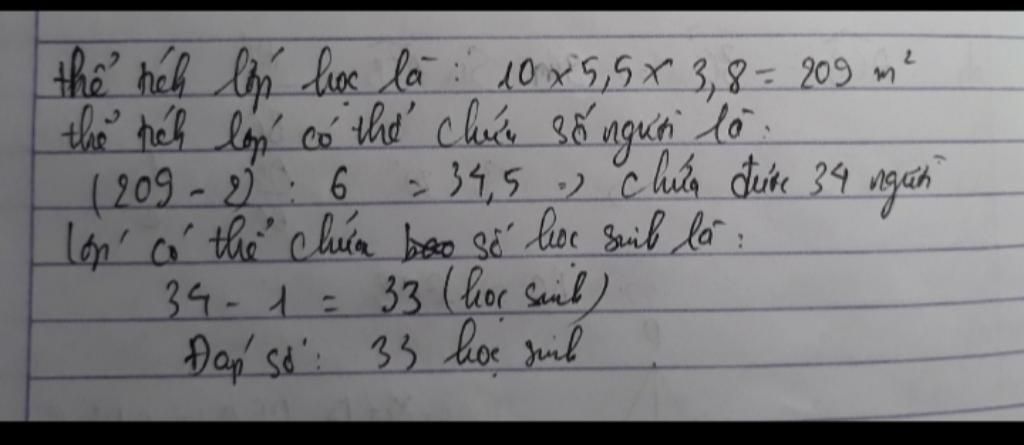 thể tích lớp học là : 10 x 5,5 x 3,8 = 209 m²
thể tích lớp có thể chứa số người là :
(209 - 2) : 6 = 34,5 => chứa được 34 người
lớp có thể chứa số học sinh là :
34 - 1 = 33 (học sinh)
Đáp số : 33 học sinh